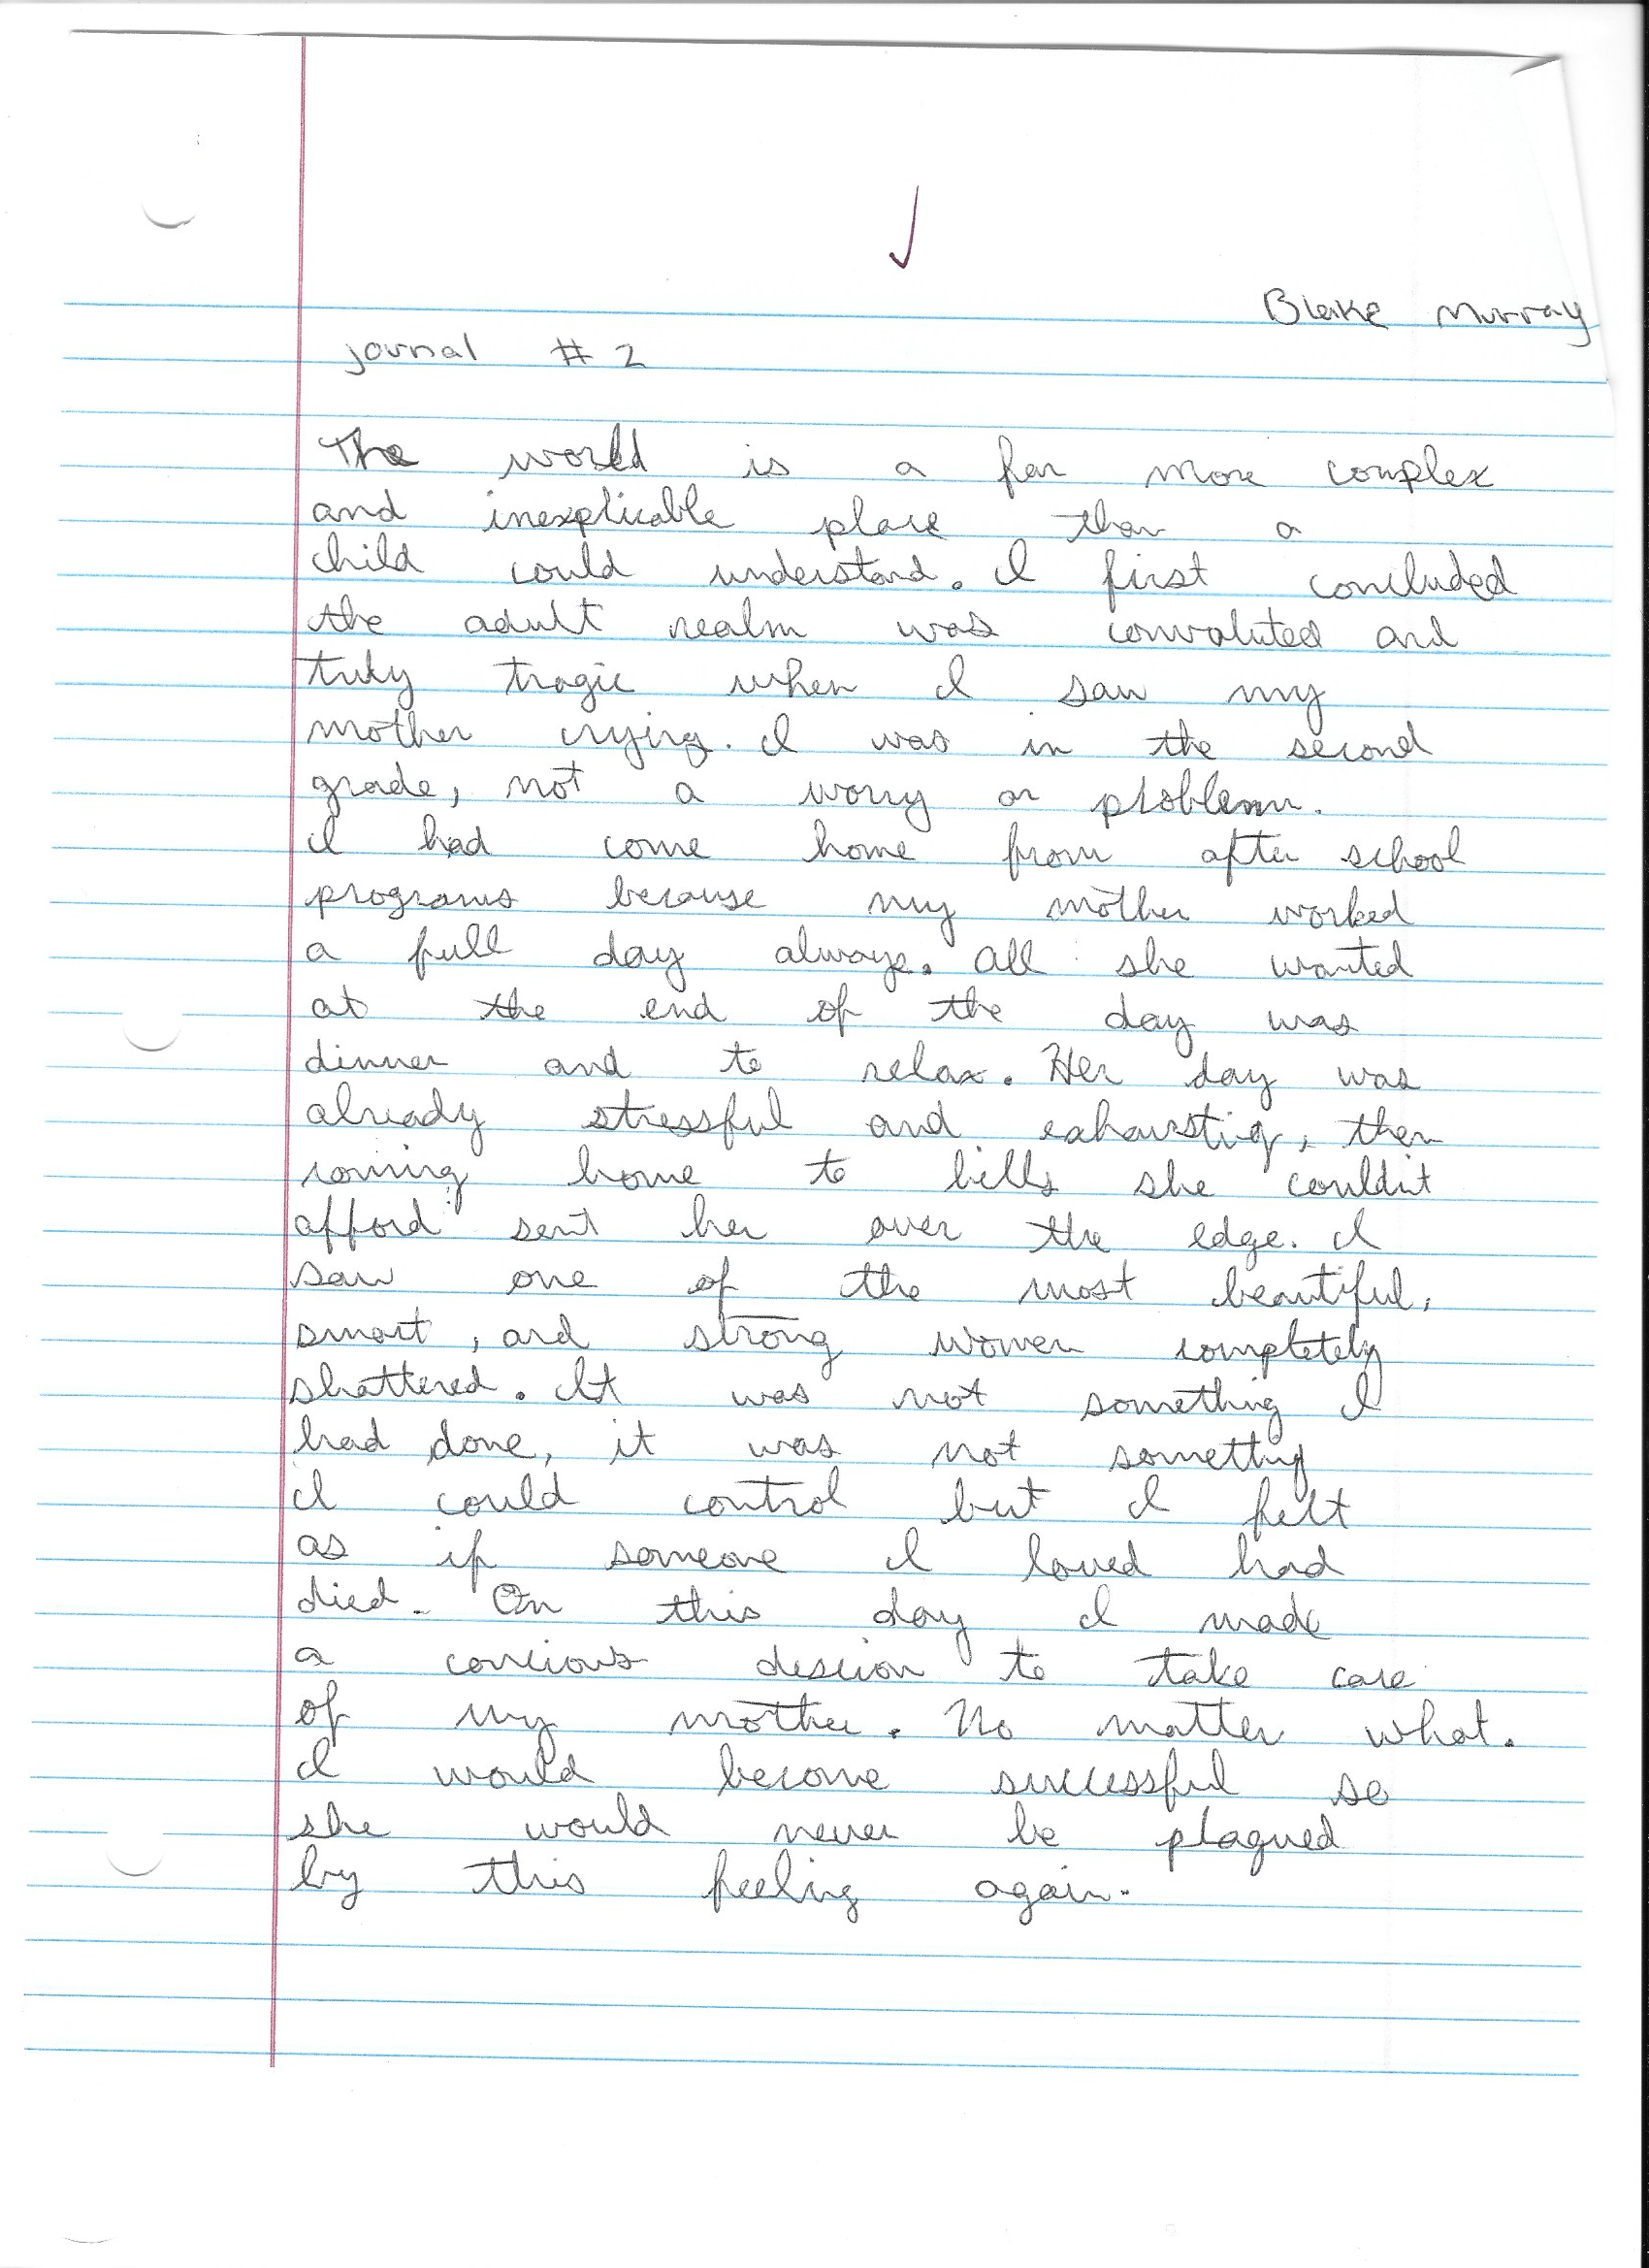 Blake Murray
Journal # 2
The world is a far more complex
and inexplicable place than a
child could understand. I first concluded
the adult realm was convoluted and
truly tragic when I saw my
mother crying. I was in the second
grade, not a worry or problem.
I had come home from after school
programs because my mother worked
a full day always. All she wanted
at the end of the day was
dinner and to relax. Her day was
already stressful and exhausting, then
coming home to bills she couldn't
afford sent her over the edge. I
saw one of the most beautiful,
smart, and strong women completely
shattered. It was not something I
had done, it was not something
I could control but I felt
as if someone I loved had
died. On this day I made
a concious descion to take care
of my mother. No matter what.
I would become successful so
she would never be plagued
by this feeling again.